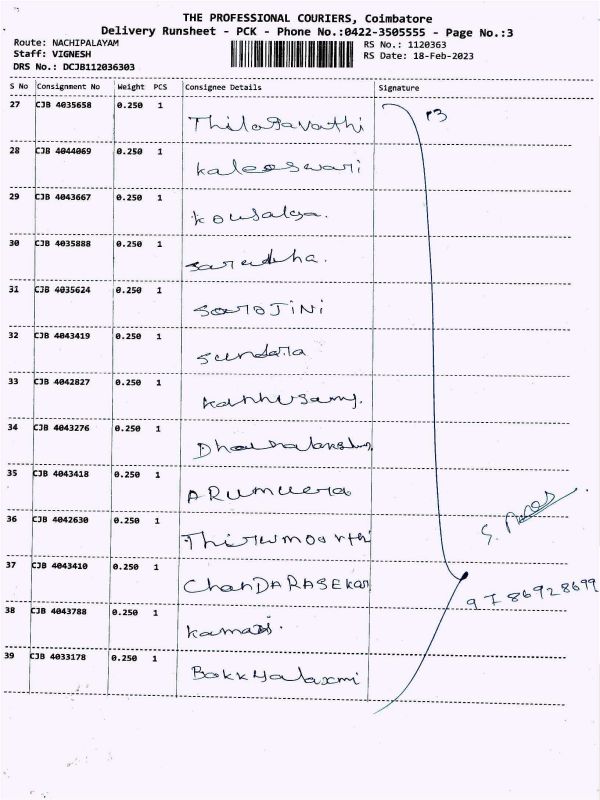 THE PROFESSIONAL COURIERS, Coimbatore
Delivery Runsheet - PCK - Phone No.:0422-3505555 - Page No.:3
Route: NACHIPALAYAM
Staff: VIGNESH
DRS No.: DCJB112036303
RS No.: 1120363
RS Date: 18-Feb-2023
S No Consignment No Weight PCS Consignee Details Signature
27 CJB 4035658 0.250 1 Thilagavathi
28 CJB 4044069 0.250 1 kaleeswari
29 CJB 4043667 0.250 1 kousalya.
30 CJB 4035888 0.250 1 saradha.
31 CJB 4035624 0.250 1 saroJiNi
32 CJB 4043419 0.250 1 sundara
33 CJB 4042827 0.250 1 kanhusamy.
34 CJB 4043276 0.250 1
35 CJB 4043418 0.250 1 ARumuera
36 CJB 4042630 0.250 1 Thirumoorthi
37 CJB 4043410 0.250 1 ChanDARASEkan
9786928699
38 CJB 4043788 0.250 1
39 CJB 4033178 0.250 1 Bakkyalaxmi